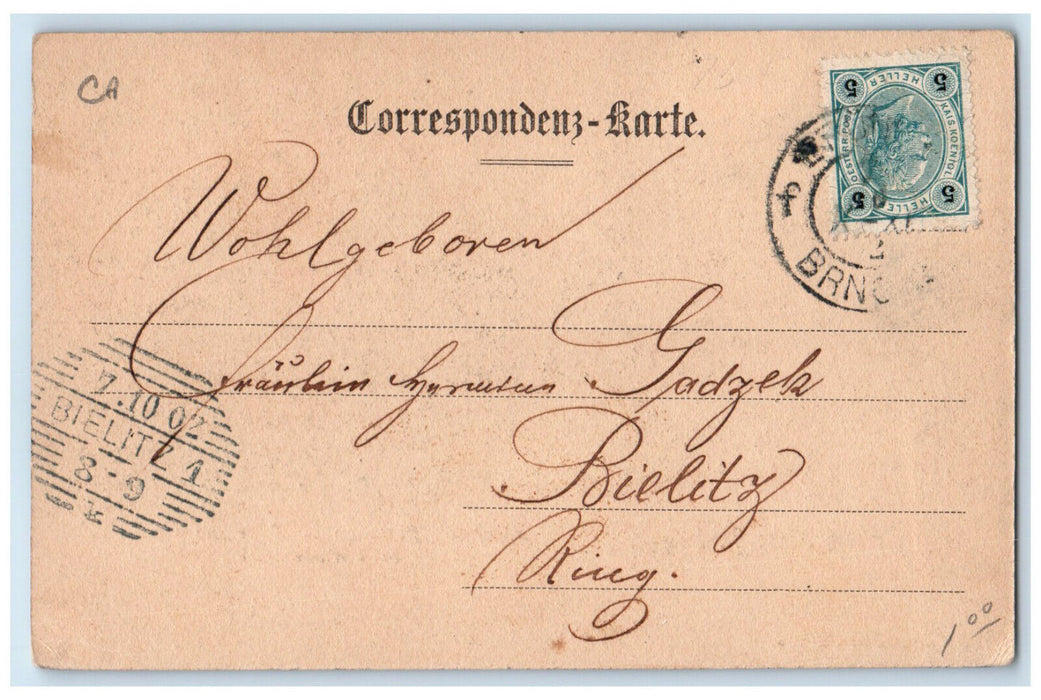 CA
Correspondenz-Karte.
5 HELLER 5
KAIS. KOENIGL.
OESTERR. POST
5 HELLER 5
BRNO
Wohlgeboren
Fräulein Hermine Gadzek
7.10 02
BIELITZ 1
8-9
Bielitz
Ring.
1.00